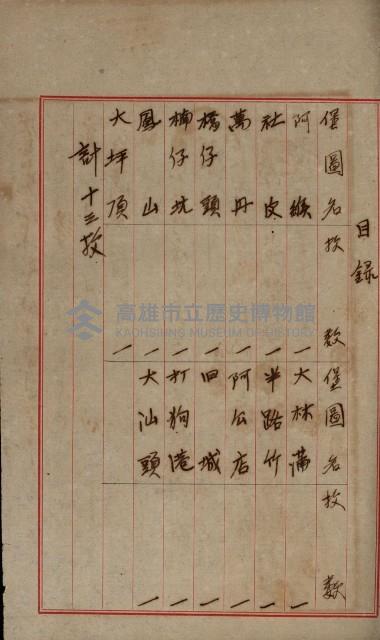 目錄
堡圖名 枚數 堡圖名 枚數
阿緱 一 大林蒲 一
社皮 一 半路竹 一
萬丹 一 阿公店 一
橋仔頭 一 旧城 一
楠仔坑 一 打狗港 一
鳳山 一 大汕頭 一
大坪頂 一
計十三枚
高雄市立歷史博物館
KAOHSIUNG MUSEUM OF HISTORY